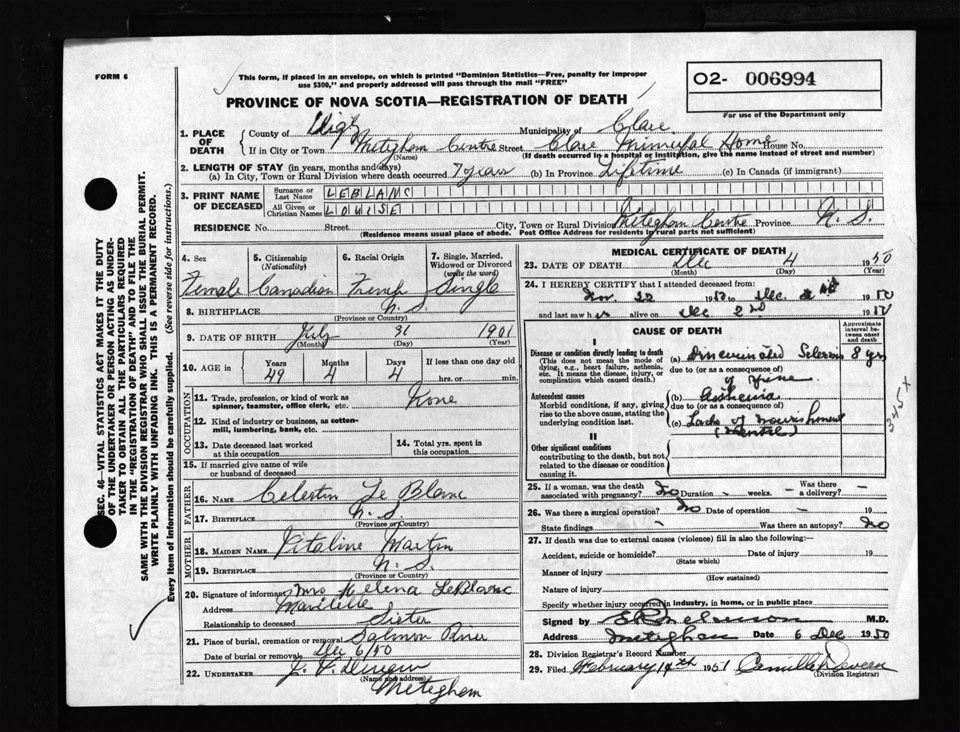 FORM 6
This form, if placed in an envelope, on which is printed "Dominion Statistics—Free, penalty for improper
use $300," and properly addressed will pass through the mail "FREE"
O2- 006994
For use of the Department only
PROVINCE OF NOVA SCOTIA—REGISTRATION OF DEATH
SEC. 46—VITAL STATISTICS ACT MAKES IT THE DUTY
OF THE UNDERTAKER OR PERSON ACTING AS UNDER-
TAKER TO OBTAIN ALL THE PARTICULARS REQUIRED
IN THE "REGISTRATION OF DEATH" AND TO FILE THE
SAME WITH THE DIVISION REGISTRAR WHO SHALL ISSUE THE BURIAL PERMIT.
WRITE PLAINLY WITH UNFADING INK. THIS IS A PERMANENT RECORD.
Every item of information should be carefully supplied. (See reverse side for instructions.)
1. PLACE OF DEATH County of Digby Municipality of Clare
If in City or Town Meteghan Centre Street Clare Home House No.
(Name) (If death occurred in a hospital or institution, give the name instead of street and number)
2. LENGTH OF STAY (in years, months and days)
(a) In City, Town or Rural Division where death occurred 7 years (b) In Province Lifetime (c) In Canada (if immigrant)
3. PRINT NAME OF DECEASED Surname or Last Name LEBLANC
All Given or Christian Names LOUISE
RESIDENCE No. Street City, Town or Rural Division Meteghan Centre Province N. S.
(Residence means usual place of abode. Post Office Address for residents in rural parts not sufficient)
4. Sex Female
5. Citizenship (Nationality) Canadian
6. Racial Origin French
7. Single, Married, Widowed or Divorced (write the word) Single
8. BIRTHPLACE N. S.
(Province or Country)
9. DATE OF BIRTH July 31 1901
(Month) (Day) (Year)
10. AGE in Years 49 Months 4 Days 4 If less than one day old hrs. or min.
OCCUPATION
11. Trade, profession, or kind of work as spinner, teamster, office clerk, etc. None
12. Kind of industry or business, as cotton-mill, lumbering, bank, etc.
13. Date deceased last worked at this occupation
14. Total yrs. spent in this occupation
15. If married give name of wife or husband of deceased
FATHER
16. NAME Celestin Le Blanc
17. BIRTHPLACE N. S.
(Province or Country)
MOTHER
18. MAIDEN NAME Vitaline Martin
19. BIRTHPLACE N. S.
(Province or Country)
20. Signature of informant Mrs Helena LeBlanc
Address Mavillette
Relationship to deceased Sister
21. Place of burial, cremation or removal Salmon River
Date of burial or removal Dec 6/50
22. UNDERTAKER
(Name and address)
Meteghan
MEDICAL CERTIFICATE OF DEATH
23. DATE OF DEATH Dec 4 1950
(Month) (Day) (Year)
24. I HEREBY CERTIFY that I attended deceased from:
Nov. 20 1950 to Dec. 1950
and last saw her alive on Dec 2nd 1950
CAUSE OF DEATH
Approximate interval between onset and death
I
Disease or condition directly leading to death (a) Disseminated Sclerosis 8 yrs
(This does not mean the mode of dying, e.g., heart failure, asthenia, etc. It means the disease, injury, or complication which caused death.)
due to (or as a consequence)
Antecedent causes (b) Asthenia
Morbid conditions, if any, giving rise to the above cause, stating the underlying condition last.
due to (or as a consequence of)
(c) Lack of nourishment
345 X
II
Other significant conditions
contributing to the death, but not related to the disease or condition causing it.
25. If a woman, was the death associated with pregnancy? No Duration - weeks. - Was there a delivery? -
26. Was there a surgical operation? No Date of operation - 19
State findings - Was there an autopsy? No
27. If death was due to external causes (violence) fill in also the following:—
Accident, suicide or homicide? Date of injury 19
(State which)
Manner of injury
(How sustained)
Nature of injury
Specify whether injury occurred in industry, in home, or in public place
Signed by M.D.
Address Meteghan Date 6 Dec 1950
28. Division Registrar's Record Number
29. Filed February 14th 1951 Camille
(Division Registrar)